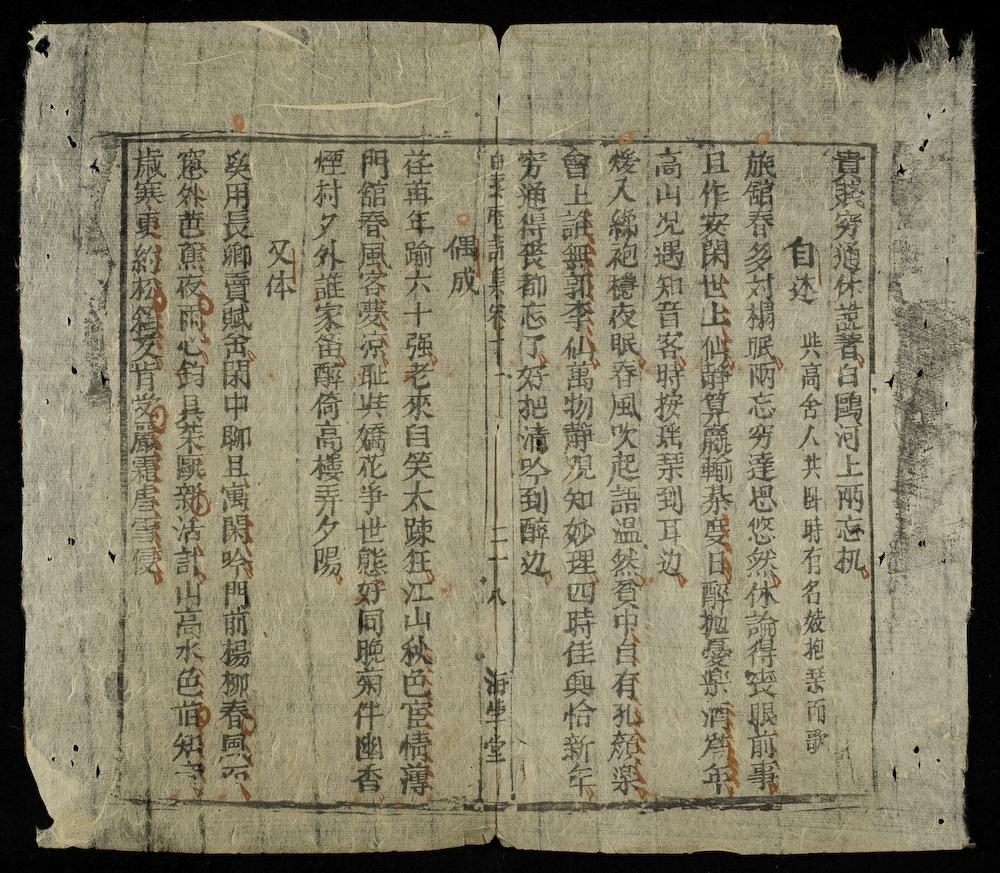 貴賤穷通休說著白鷗河上兩忘机
自述 與高舍人共卧時有名妓抱琴而歌
旅舘春多対榻眠兩忘穷達思悠然休論得喪眼前事
且作安閑世上仙静算贏輸碁度日醉抛憂樂酒為年
高山况遇知音客時按瑶琴到耳边
煖入綈袍穏夜眠春風吹起語温然貧中自有孔顔樂
會上誰無郭李仙萬物静观知妙理四時佳興恰新年
穷通得喪都忘了好把清吟到醉边
詩集卷十一 二十八 海生堂
偶成
荏苒年踰六十强老來自笑太踈狂江山秋色宦情薄
門舘春風客夢凉耻與嬌花爭世態好同晚菊伴幽香
煙村夕外誰家笛醉倚高樓弄夕陽
又体
奚用長卿賣賦金閑中聊且寓閑吟門前楊柳春風
窓外芭蕉夜雨心鈞具茶甌新活計山高水色旧知
歳寒更約松筠友肯受嚴霜虐雪侵